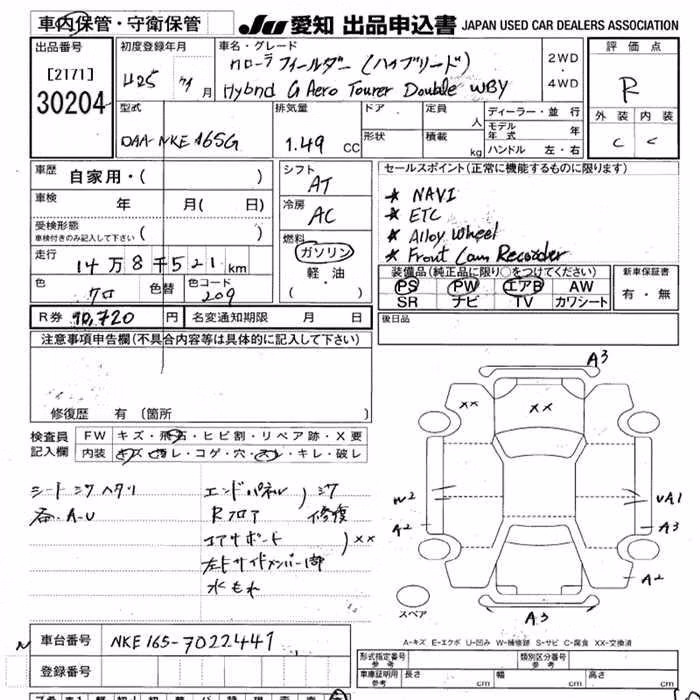 車内保管・守衛保管
JU 愛知 出品申込書 JAPAN USED CAR DEALERS ASSOCIATION
出品番号
[2171]
30204
初度登録年月
H25 年 月
車名・グレード
カローラフィールダー (ハイブリード)
Hybrid G Aero Tourer Double WBY
2WD
・
4WD
評価点
R
外装 内装
C C
型式
DAA-NKE165G
排気量
1.49 CC
ドア
形状
定員
人
積載
kg
ディーラー・並行
モデル年式 年
ハンドル 左・右
車歴
自家用・( )
車検
年 月( 日)
受検形態
車検付きのみ記入して下さい ( )
走行
14万8千521km
色
クロ
色替
色コード
209
( ・ )
シフト
AT
冷房
AC
燃料
ガソリン
軽・油
( ・ )
セールスポイント(正常に機能するものに限ります)
* NAVI
* ETC
* Alloy Wheel
* Front Cam Recorder
装備品(純正品に限り○をつけてください)
PS PW エアB AW
SR ナビ TV カワシート
新車保証書
有・無
R券 10,720 円
名変通知期限 月 日
後日品
注意事項申告欄(不具合内容等は具体的に記入して下さい)
修復歴 有 (箇所 )
検査員
記入欄
FW キズ・飛石・ヒビ割・リペア跡・X要
内装 キズ・汚レ・コゲ・穴・スレ・キレ・破レ
シートシワヘタリ
各.A-U
エンドパネル
Rフロア
コアサポート
左右サイドメンバー部
水もれ
修復
××
A3
××
××
W2
A2
UA1
A3
A2
A3
スペア
A-キズ E-エクボ U-凹み W-補修跡 S-サビ C-腐食 XX-交換済
車台番号
NKE165-7022441
登録番号
形式指定番号
参考
類別区分番号
参考
車庫証明用
参考
長さ cm 幅 cm 高さ cm